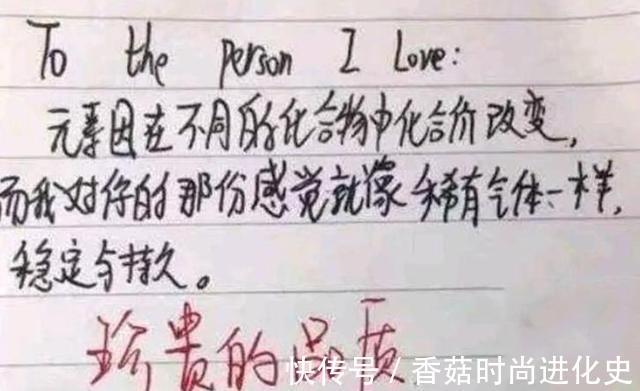 To the person I Love:
元素因在不同的化合物中化合价改变，
而我对你的那份感觉就像稀有气体一样，
稳定与持久。
珍贵的品质
快传号 / 香菇时尚进化史